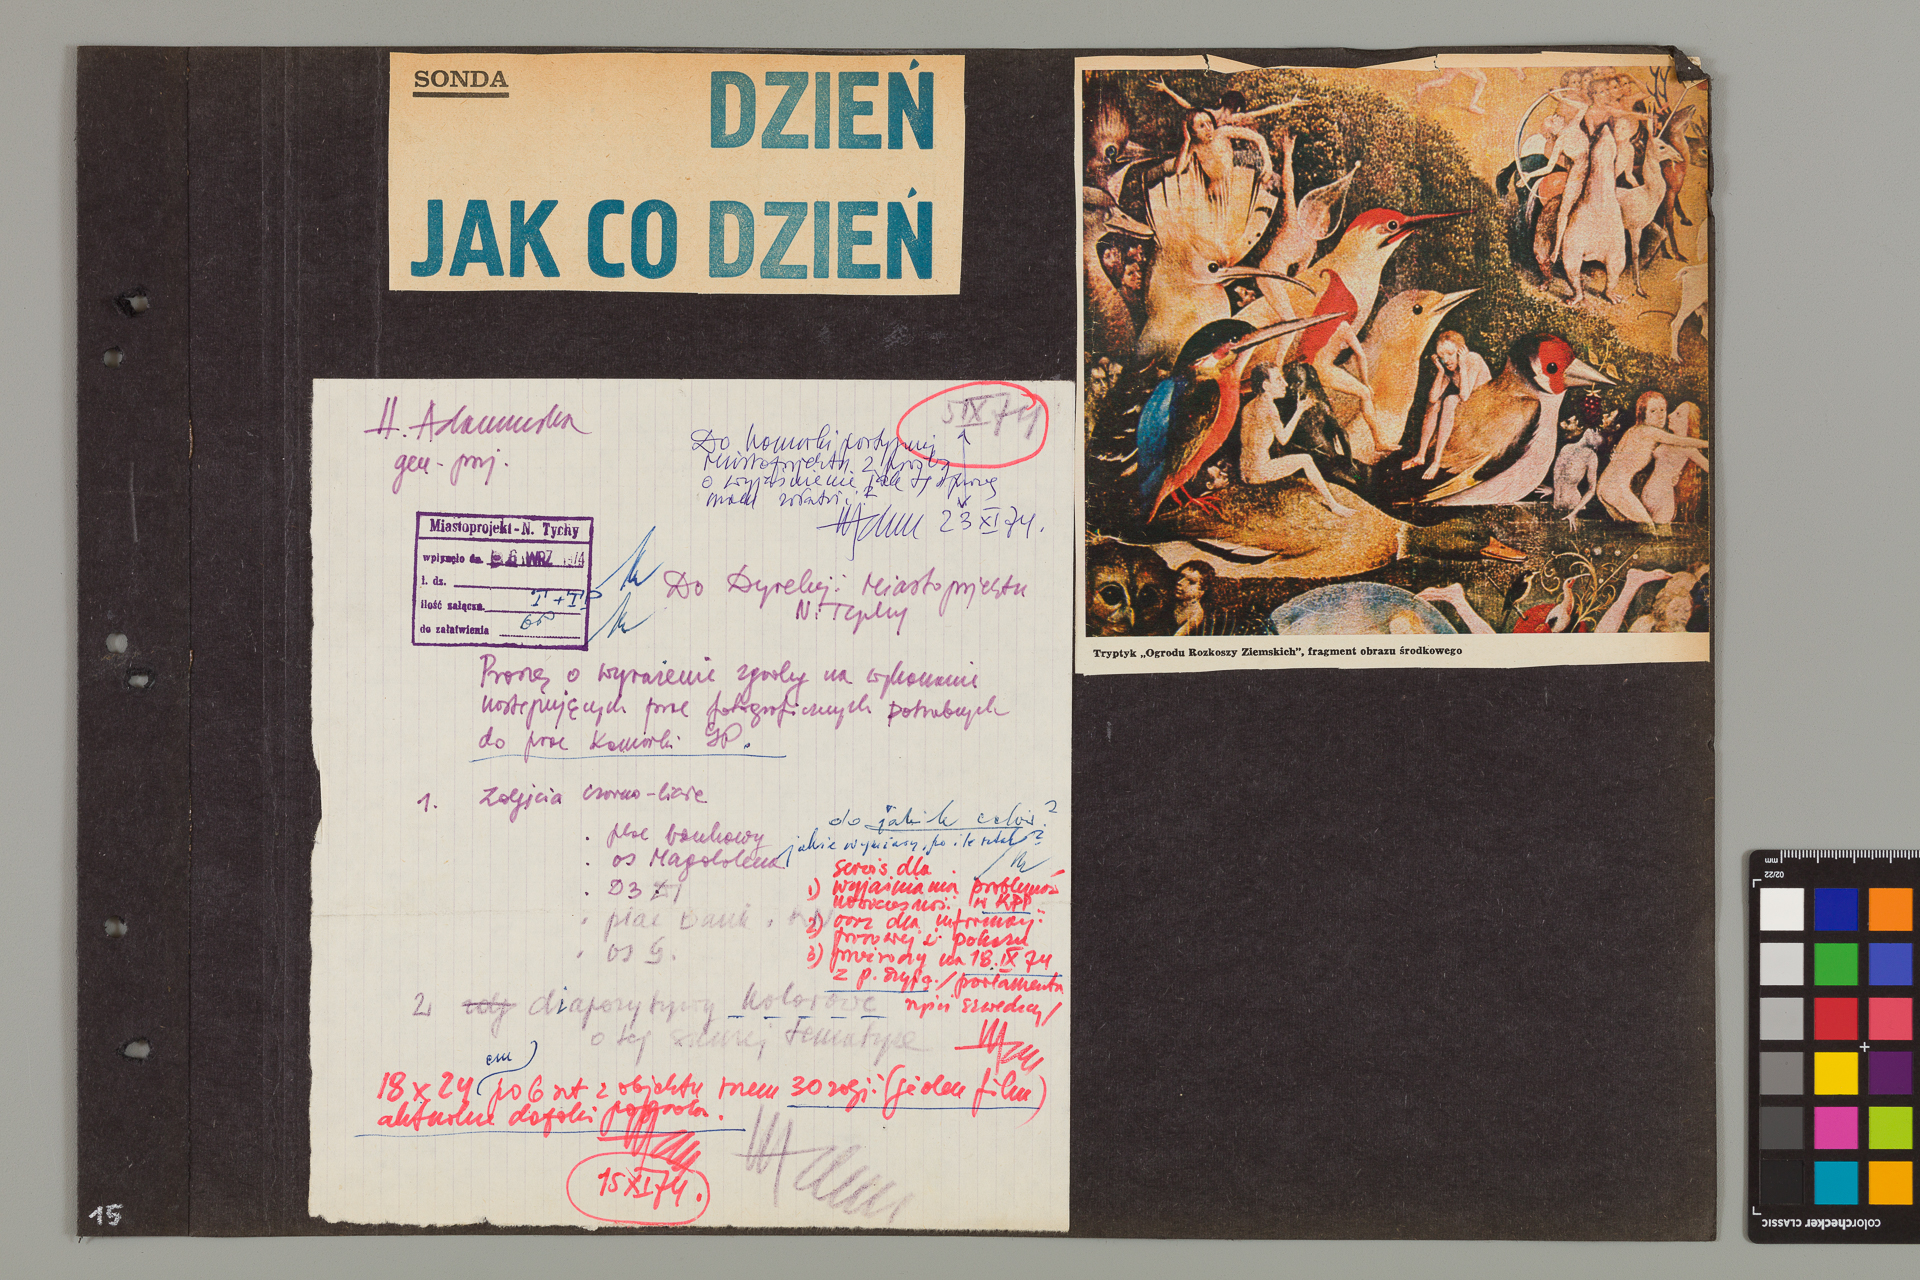 SONDA
DZIEŃ
JAK CO DZIEŃ
Tryptyk „Ogrodu Rozkoszy Ziemskich”, fragment obrazu środkowego
H. Adamczewska
gen - proj.
5 IX 74
Do komórki
Miastoprojektu z prośbą
o wyjaśnienie jak tę sprawę
mam załatwić?
23 XI 74.
Miastoprojekt - N. Tychy
wpłynęło dn. 6 WRZ 1974
l. dz.
ilość załącz.
do załatwienia
Do Dyrekcji Miastoprojektu
N. Tychy
Proszę o wyrażenie zgody na wykonanie
następujących prac fotograficznych potrzebnych
do prac Komórki GP.
1. Zdjęcia czarno-białe
. plac bankowy
. os Magdalena
. D3
. plac Bank
. os G.
do jakich celów?
jakie wymiary, po ile sztuk?
serwis dla
1) wyjaśniania problemów
w KPP
2) oraz dla informacji
prasowej i pokazu
3) przeźroczy na 18. IX 74
z p. /parlamenta
rzyści szwedzcy/
2. diapozytywy kolorowe
o tej samej tematyce
cm
18 x 24 po 6 szt z objektu razem 30 zdjęć (jeden film)
aktualne
15 XI 74.
15
mm
02/22
colorchecker CLASSIC